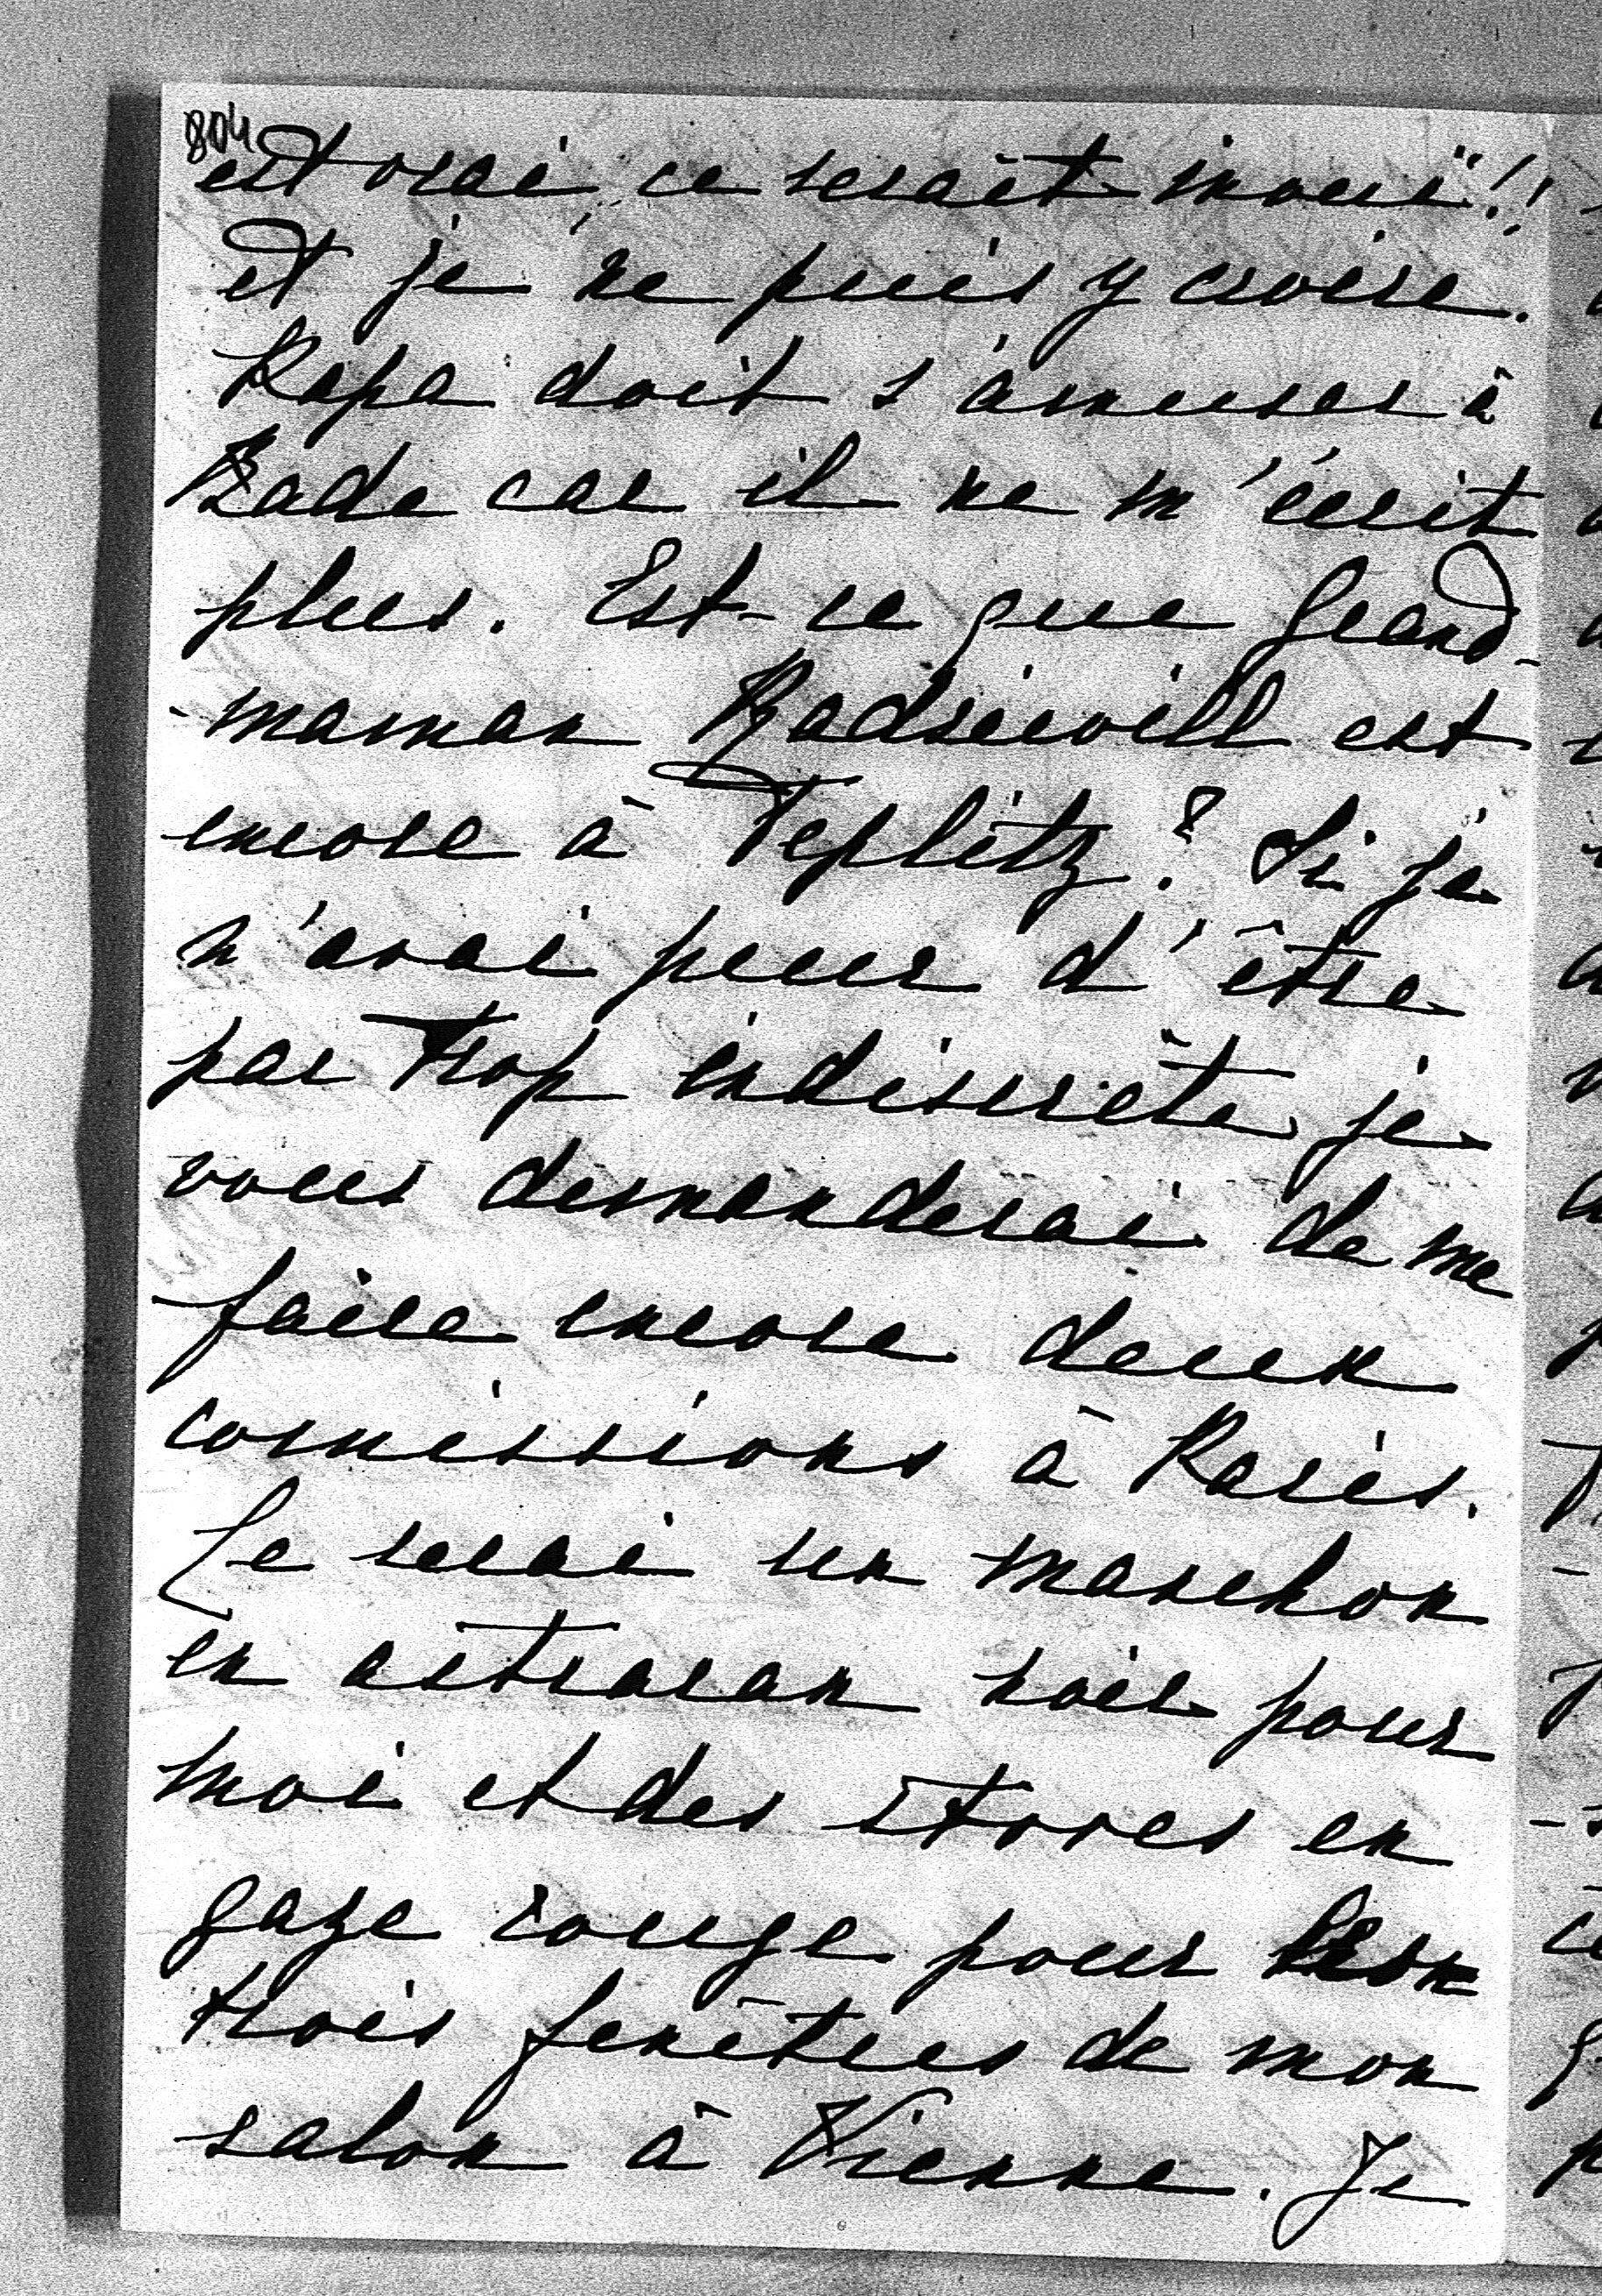 804
est vrai, ce serait inouï!!
et je ne puis y croire.
Papa doit s'amuser à
Bade car il ne m'écrit
plus. Est-ce que Grand-
-maman Radziwill est
encore à Teplitz? Si je
n'avai peur d'être
par trop indiscrète je
vous demanderai de me
faire encore deux
comissions à Paris.
Ce serai un manchon
en astracan noir pour
moi et des stores en
gaze rouge pour
trois fenêtres de mon
salon à Vienne. Je